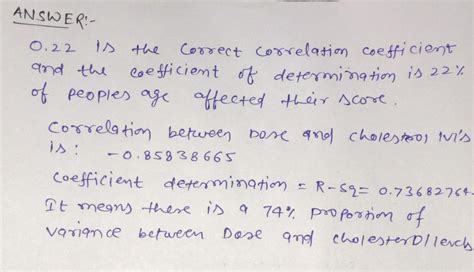 ANSWER:-
0.22 is the correct correlation coefficient
and the coefficient of determination is 22%
of peoples age affected their score.
Correlation between Dose and cholesterol lvl's
is : -0.85838665
Coefficient determination = R-Sq = 0.73682764.
It means there is a 74% proportion of
variance between Dose and cholesterol levels